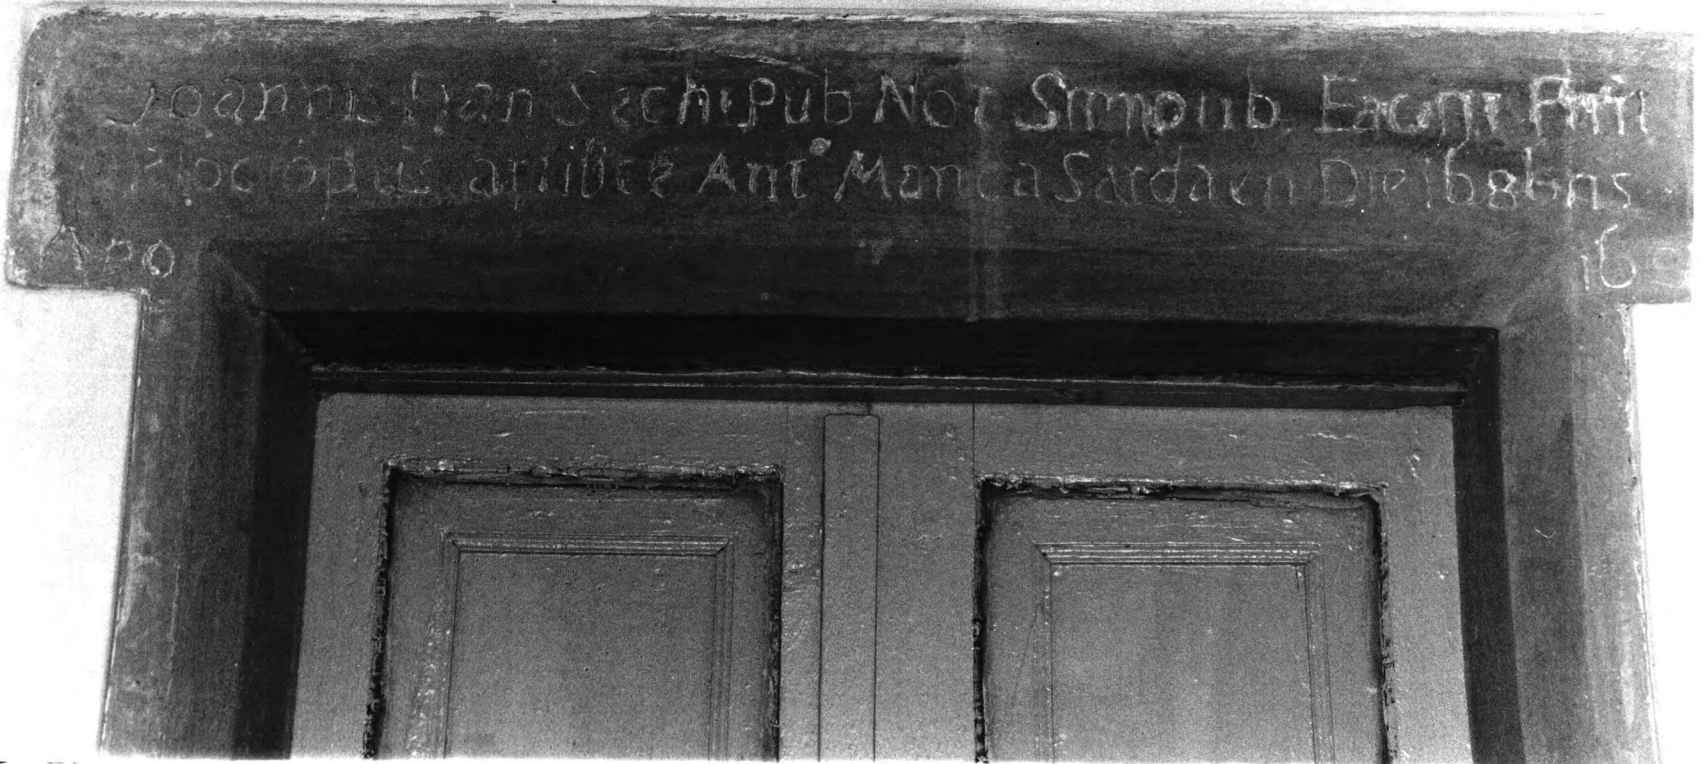 Joannis Fran Sechi Pub Not Sumptib. Facient
Hoc opus artifice Ant° Manca Sardaen Die 16 8bris
Ano 16